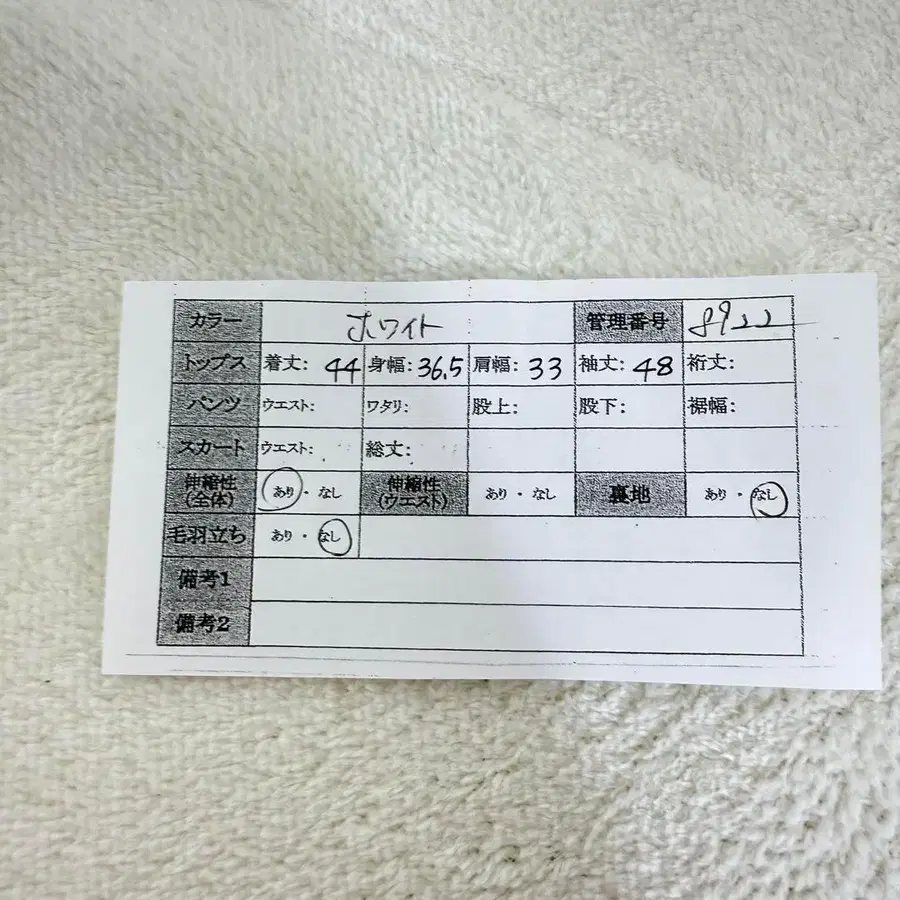 カラー ホワイト 管理番号 8922
トップス 着丈: 44 身幅: 36.5 肩幅: 33 袖丈: 48 裄丈:
パンツ ウエスト: ワタリ: 股上: 股下: 裾幅:
スカート ウエスト: 総丈:
伸縮性(全体) あり・なし 伸縮性(ウエスト) あり・なし 裏地 あり・なし
毛羽立ち あり・なし
備考1
備考2